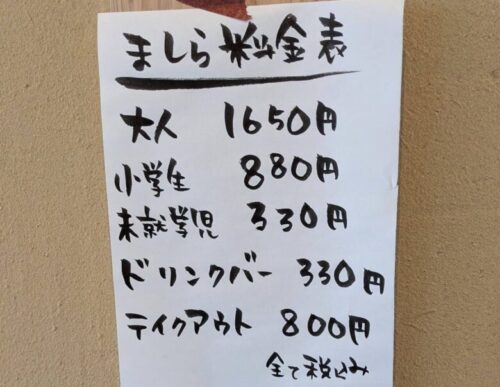 ましら料金表
大人 1650円
小学生 880円
未就学児 330円
ドリンクバー 330円
テイクアウト 800円
全て税込み